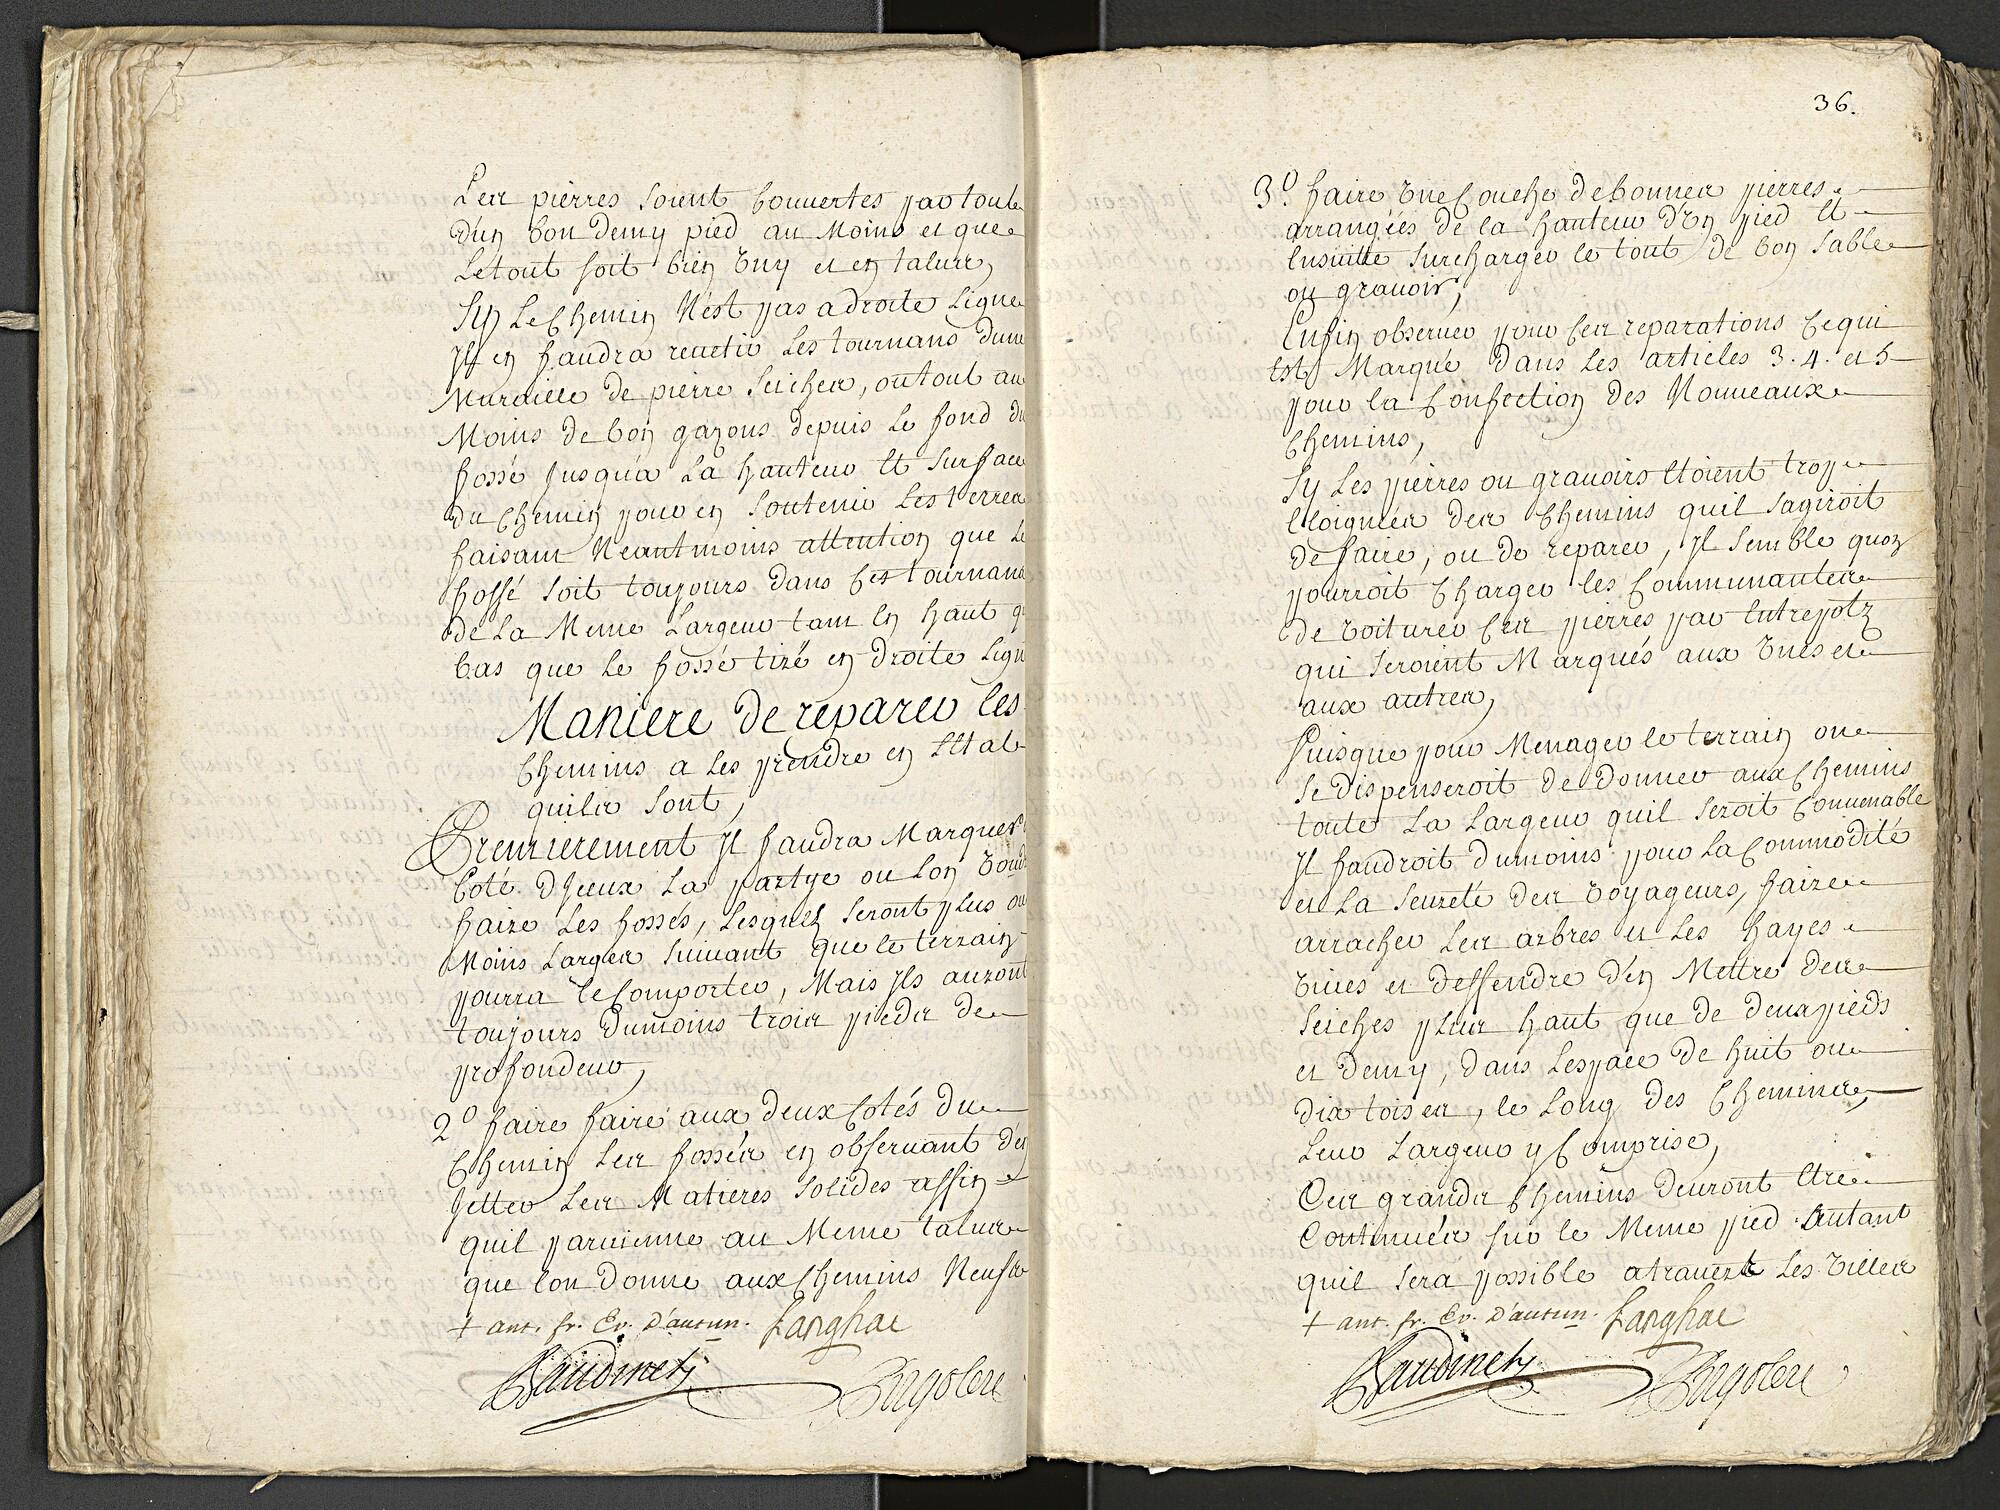 Les pierres soient Couvertes partoute
d'un bon demy pied au Moins et que
Letout soit bien Vny et en talus,
Sy Le Chemin N'est pas adroite Ligne
Il en faudra revetir Les tournans dune
Muraille de pierre Seiches, outout au
Moins de bon gazons depuis Le fond du
fossé Jusqu'a La hauteur Et Surface
du Chemin pour en Soutenir Les terres
faisant Neantmoins attention que Le
fossé soit toujours dans Ces tournans
de La Meme Largeur tant En haut q
bas que Le fossé tiré en droite Lign
Maniere de reparer les
Chemins a Les prendre en Létat
quils sont,
Premierement Il faudra Marquer
Coté d'Jceux La partye ou Lon Voud
faire Les fossés, Lesquels Seront plus ou
Moins Larges Suivant que le terrain
pourra le Comporter, Mais Ils auront
toujours dumoins trois pieds de
profondeur,
2º faire faire aux deux Cotés du
Chemin Les fossés en observant d'en
Jetter Les Matieres Solides affin
quil parvienne au Meme talus
que lon donne aux Chemins Neufs
+ ant. fr. Ev. D'autun. Langhac
Baudinet
36.
3º. faire Vne Couche de bonnes pierres
arrangées de la hauteur d'Vn pied Et
Ensuitte Surcharger le tout de bon Sable
ou gravoir,
Enfin observer pour Ces reparations Cequi
Est Marqué dans Les articles 3. 4. et 5
pour la Confection des Nouveaux
Chemins,
Sy Les pierres ou gravoirs Etoient trop
Eloignées des Chemins quil Sagiroit
de faire, ou de reparer, Il Semble quon
pourroit Charger les Communautes
de Voiturer Ces pierres par Entrepotz
qui Seroient Marqués aux Vnes et
aux autres,
Puisque pour Menager le terrain on
Se dispenseroit de donner aux Chemins
toute La Largeur quil Seroit Convenable
Il faudroit dumoins pour La Commodité
et La Seureté des Voyageurs, faire
arracher Les arbres et Les hayes
Vives et deffendre d'en Mettre des
Seiches plus haut que de deux pieds
et demy, dans Lespace de huit ou
dix toises, le Long des Chemins,
Leur Largeur y Comprise,
Ces grands Chemins devront Etre
Continués sur le Meme pied Autant
quil Sera possible atravers Les Villes
+ ant. fr. Ev. D'autun. Langhac
Baudinet